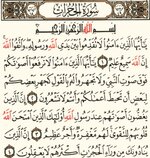 سُورَةُ الْحُجُرَاتِ
بِسْمِ اللَّهِ الرَّحْمَٰنِ الرَّحِيمِ
يَا أَيُّهَا الَّذِينَ آمَنُوا لَا تُقَدِّمُوا بَيْنَ يَدَيِ اللَّهِ وَرَسُولِهِ وَاتَّقُوا اللَّهَ
إِنَّ اللَّهَ سَمِيعٌ عَلِيمٌ ١ يَا أَيُّهَا الَّذِينَ آمَنُوا لَا تَرْفَعُوا أَصْوَاتَكُمْ
فَوْقَ صَوْتِ النَّبِيِّ وَلَا تَجْهَرُوا لَهُ بِالْقَوْلِ كَجَهْرِ بَعْضِكُمْ
لِبَعْضٍ أَنْ تَحْبَطَ أَعْمَالُكُمْ وَأَنْتُمْ لَا تَشْعُرُونَ ٢ إِنَّ الَّذِينَ
يَغُضُّونَ أَصْوَاتَهُمْ عِنْدَ رَسُولِ اللَّهِ أُولَٰئِكَ الَّذِينَ امْتَحَنَ اللَّهُ
قُلُوبَهُمْ لِلتَّقْوَىٰ لَهُمْ مَغْفِرَةٌ وَأَجْرٌ عَظِيمٌ ٣ إِنَّ الَّذِينَ
يُنَادُونَكَ مِنْ وَرَاءِ الْحُجُرَاتِ أَكْثَرُهُمْ لَا يَعْقِلُونَ ٤